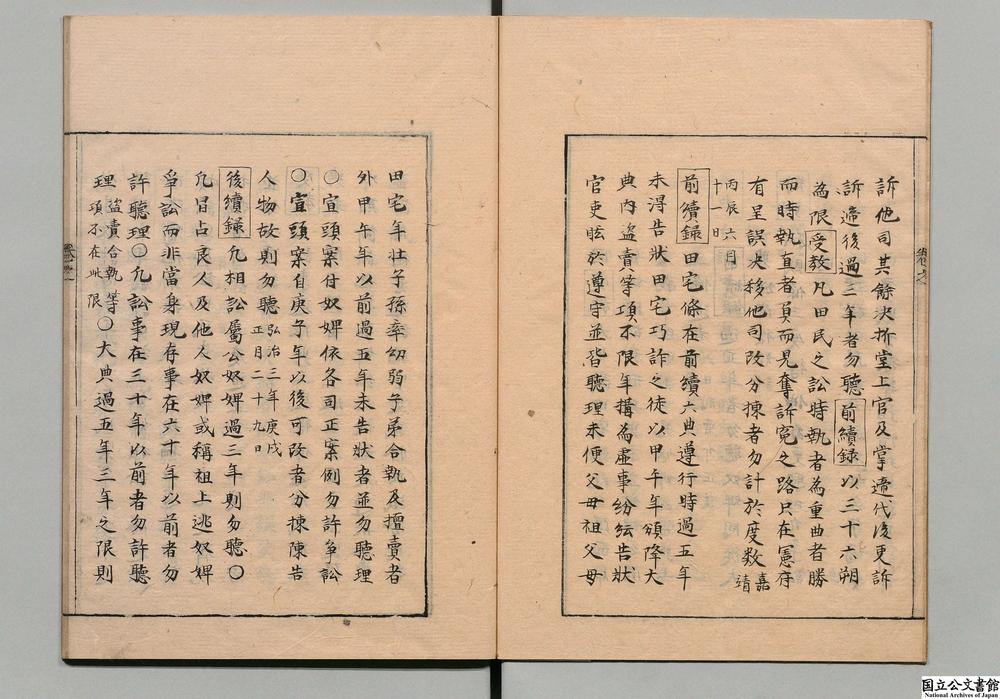 訴他司其餘決折堂上官及掌遆代後更訴
訴遆後過二年者勿聽前續録以三十六朔
為限受敎凡田民之訟時執者為重曲者勝
而時執直者員而見奪訴寃之路只在憲府
有呈誤决移他司改分揀者勿計於度数嘉靖
丙辰六月
十一日
前續録田宅條在前續六典遵行時過五年
未淂告状田宅巧詐之徒以甲午年頒降大
典内盗賣等項不限年搆為虚事紛紜告状
官吏眩於遵守並皆聽理未便父母祖父母
田宅年壮子孫率幼弱子弟合執及擅賣者
外甲午年以前過五年未告状者並勿聽理
○宣頭案付奴婢依各司正案例勿許爭訟
○宣頭案自庚子年以後可改者分揀陳告
人物故則勿聽弘治三年庚戌
正月二十九日
後續録凢相訟屬公奴婢過三年則勿聽○
凢冒占良人及他人奴婢或稱祖上逃奴婢
爭訟而非當身現存事在六十年以前者勿
許聽理○凢訟事在三十年以前者勿許聽
理盗賣合執等
項不在此限○大典過五年三年之限則
国立公文書館
National Archives of Japan